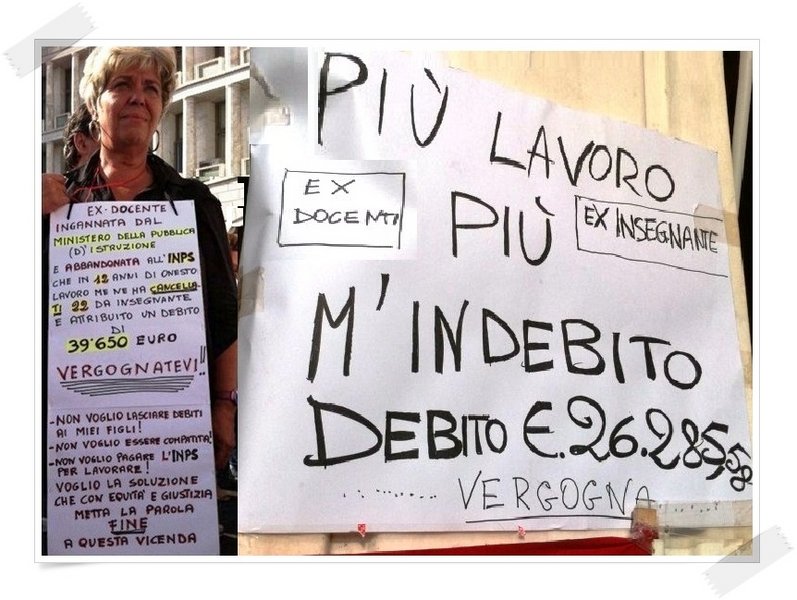 EX-DOCENTE
INGANNATA DAL
MINISTERO DELLA PUBBLICA
(D)ISTRUZIONE
E ABBANDONATA ALL'INPS
CHE IN 12 ANNI DI ONESTO
LAVORO ME NE HA CANCELLA-
TI 22 DA INSEGNANTE
E ATTRIBUITO UN DEBITO
DI
39.650 EURO
VERGOGNATEVI!!
-NON VOGLIO LASCIARE DEBITI
AI MIEI FIGLI!
-NON VOGLIO ESSERE COMPATITA!
-NON VOGLIO PAGARE L'INPS
PER LAVORARE!
VOGLIO LA SOLUZIONE
CHE CON EQUITÀ E GIUSTIZIA
METTA LA PAROLA
FINE
A QUESTA VICENDA
PIÙ LAVORO
EX
DOCENTI
PIÙ
EX INSEGNANTE
M'INDEBITO
DEBITO €.26.285,58
......... VERGOGNA